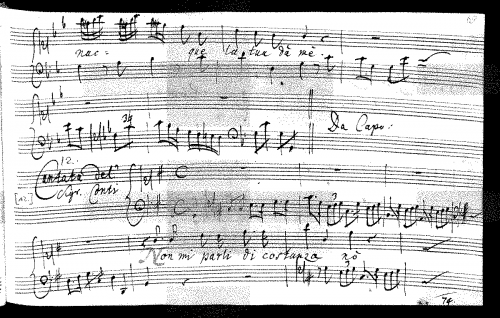 nac: que la tua dà me.
Da Capo:
12.
Cantata del
Sigr. Conti
[12.]
Non mi parli di costanza nò
74.